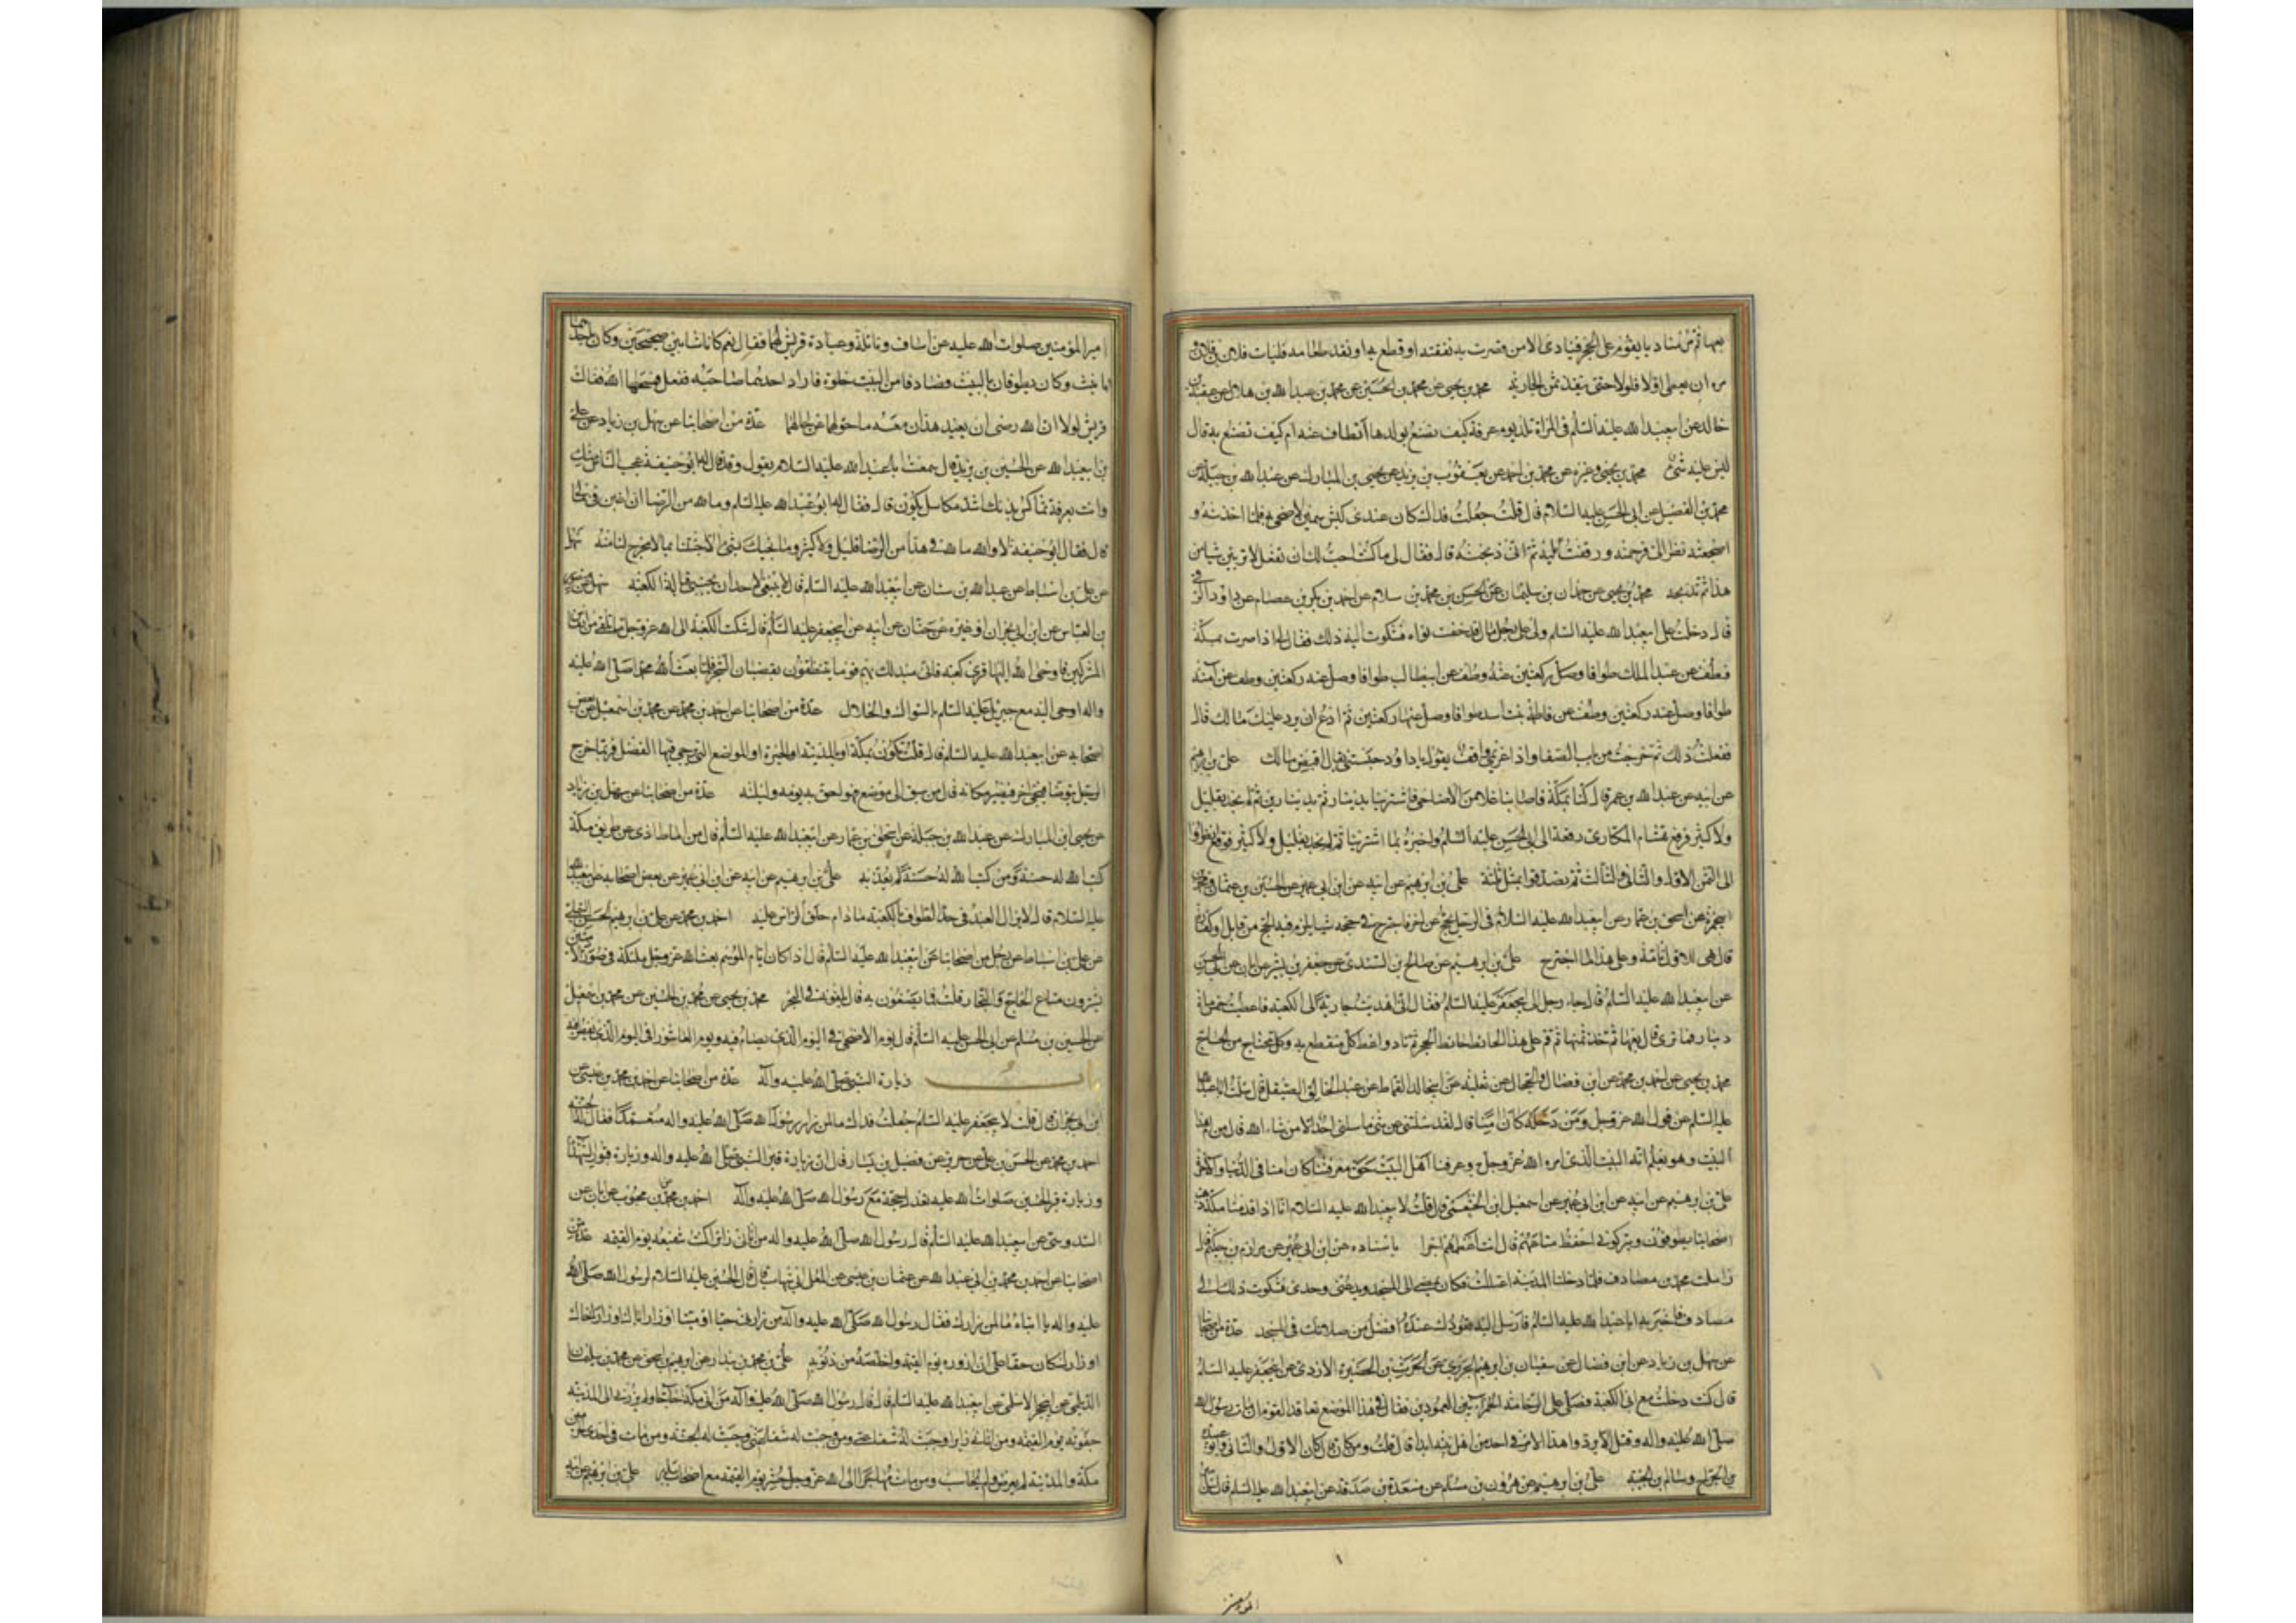 بعها ثم مر مناديا يقوم على الحجر فينادى الا من قصرت به نفقته او قطع به او نفد طعامه فليات فلان بن فلان
مره ان يعطى اولا فاولا حتى ينفد ثمن الجارية محمد بن يحيى عن محمد بن الحسين عن محمد بن عبدالله بن هلال عن عقبة بن
خالد عن ابيعبدالله عليه السلم فى المراة تلد يوم عرفة كيف تصنع بولدها أيطاف عنه ام كيف تصنع به قال
ليس عليه شئ محمد بن يحيى وغيره عن محمد بن احمد عن يعقوب بن يزيد عن يحيى بن المبارك عن عبدالله بن جبلة عن
محمد بن الفضيل عن ابى الحسن عليه السلام قال قلت جعلت فداك كان عندى كبش سمين لاضحى به فلما اخذته و
اضجعته نظر الى فرحمته ورققت عليه ثم انى ذبحته قال فقال لى ما كنت احب لك ان تفعل لا تربين شيا من
هذا ثم تذبحه محمد بن يحيى عن حمدان بن سليمان عن الحسن بن محمد بن سلام عن احمد بن بكر بن عصام عن داود الرقى
قال دخلت على ابيعبدالله عليه السلم ولى على رجل مال قد خفت تواه فشكوت اليه ذلك فقال لى اذا صرت بمكة
فطف عن عبد المطلب طوافا وصل ركعتين عنه وطف عن ابيطالب طوافا وصل عنه ركعتين وطف عن آمنة
طوافا وصل عنها ركعتين وطف عن فاطمة بنت اسد طوافا وصل عنها ركعتين ثم ادع ان يرد عليك مالك قال
ففعلت ذلك ثم خرجت من باب الصفا واذا غريمى واقف يقول يا داود حبستنى تعال اقبض مالك على بن ابرهيم
عن ابيه عن عبدالله بن عمر قال كنا بمكة فاصابنا غلاء من الاضاحى فاشترينا بدينار ثم بدينارين ثم لم نجد بقليل
ولا كثير فرقع هشام المكارى رقعة الى ابى الحسن عليه السلم واخبره بما اشترينا ثم لم نجد بقليل ولا كثير فوقع انظروا
الى الثمن الاول والثانى والثالث ثم تصدقوا بمثل ثلثه على بن ابرهيم عن ابيه عن ابن ابى عمير عن الحسين بن عثمان عمن
ذكره عن اسحق بن عمار عن ابيعبدالله عليه السلام فى الرجل يحج عن اخر فاجترح فى حجه شيا يلزمه فيه الحج من قابل او كفارة
قال هى للاول تامة وعلى هذا ما اجترح على بن ابرهيم عن صالح بن السندى عن جعفر بن بشير عن ابان عن ابى الحسن
عن ابيعبدالله عليه السلم قال جاء رجل الى ابيجعفر عليه السلم فقال انى اهديت جارية الى الكعبة فاعطيت خمسماة
دينار فما ترى قال بعها ثم خذ ثمنها ثم قم على هذا الحائط حائط الحجر ثم ناد واعط كل منقطع به وكل محتاج من الحاج
محمد بن يحيى عن احمد بن محمد عن ابن فضال والحجال عن ثعلبة عن ابيخالد القماط عن عبد الخالق الصيقل قال سالت اباعبدالله
عليه السلم عن قول الله عز وجل ومن دخله كان آمنا قال لقد سئلتنى عن شئ ما سئلنى احد الا من شاء الله قال من ام هذا
البيت وهو يعلم انه البيت الذى امره الله عز وجل به وعرفنا اهل البيت حق معرفتنا كان امنا فى الدنيا والاخرة
على بن ابرهيم عن ابيه عن ابن ابى عمير عن اسمعيل الخثعمى قال قلت لابيعبدالله عليه السلام انا اذا قدمنا مكة ذهب
اصحابنا يطوفون ويتركونى احفظ متاعهم قال انت اعظمهم اجرا باسناده عن ابن ابى عمير عن مرازم بن حكيم قال
زاملت محمد بن مصادف فلما دخلنا المدينة اعتللت فكان يمضى الى المسجد ويدعنى وحدى فشكوت ذلك الى
مصادف فاخبر به اباعبدالله عليه السلم فارسل اليه قعودك عنده افضل من صلاتك فى المسجد عدة من اصحابنا
عن سهل بن زياد عن ابن فضال عن سفيان بن ابرهيم الجريرى عن الحرث بن الحصيرة الازدى عن ابيجعفر عليه السلم
قال كنت دخلت مع ابى الكعبة فصلى على الرخامة الحمرآء بين العمودين فقال فى هذا الموضع تعاقد القوم ان مات رسول الله
صلى الله عليه واله وقتل الا يردوا هذا الامر فى احد من اهل بيته ابدا قال قلت ومن كان قال كان الاول والثانى وابو عبيدة
بن الجراح وسالم بن الحبيبه على بن ابرهيم عن هرون بن مسلم عن مسعدة بن صدقة عن ابيعبدالله عليه السلم قال سئل
اميرالمؤمنين صلوات الله عليه عن اساف ونائلة وعبادة قريش لهما فقال نعم كانا شابين صبيحين وكان باحدهما
تانيث وكانا يطوفان بالبيت فصادفا من البيت خلوة فاراد احدهما صاحبه ففعل فمسخهما الله فقالت
قريش لولا ان الله رضى ان يعبد هذان معه ما حولهما عن حالهما عدة من اصحابنا عن سهل بن زياد عن على
بن ابيعبدالله عن الحسين بن يزيد قال سمعت اباعبدالله عليه السلام يقول وقد قال له ابوحنيفة عجب الناس منك
وانت بعرفة تماكس ببدنك اشد مكاس يكون قال فقال له ابوعبدالله عليه السلم وما لله من الرضا ان اغبن فى مالى
قال فقال ابوحنيفة لا والله ما لله فى هذا من الرضا قليل ولا كثير وما نجيئك بشئ الا جئتنا بما لا مخرج لنا منه سهل
عن على بن اسباط عن عبدالله بن سنان عن ابيعبدالله عليه السلم قال لا ينبغى لاحد ان يحتبى قبالة الكعبة سهل عن منصور
بن العباس عن ابن ابى نجران او غيره عن حنان عن ابيه عن ابيجعفر عليه السلم قال شكت الكعبة الى الله عز وجل ما تلقى من انفاس
المشركين فاوحى الله اليها قرى كعبة فانى مبدلك بهم قوما يتنظفون بقضبان الشجر فلما بعث الله محمدا صلى الله عليه
واله اوحى اليه مع جبريل عليه السلم بالسواك والخلال عدة من اصحابنا عن احمد بن محمد عن محمد بن اسمعيل عن بعض
اصحابه عن ابيعبدالله عليه السلم قال قلت نكون بمكة او بالمدينة او الحيرة او المواضع التى يرجى فيها الفضل فربما خرج
الرجل يتوضا فيجئ اخر فيصير مكانه قال من سبق الى موضع فهو احق به يومه وليلته عدة من اصحابنا عن سهل بن زياد
عن يحيى ابن المبارك عن عبدالله بن جبلة عن اسحق بن عمار عن ابيعبدالله عليه السلم قال من اماط اذى عن طريق مكة
كتب الله له حسنة ومن كتب الله له حسنة لم يعذبه على بن ابرهيم عن ابيه عن ابن ابى عمير عن بعض اصحابه عن ابيعبدالله
عليه السلام قال لا يزال العبد فى حد الطواف بالكعبة ما دام حلق الراس عليه احمد بن محمد عن على بن ابرهيم
عن على بن اسباط عن رجل من اصحابنا عن ابيعبدالله عليه السلم قال اذا كان ايام الموسم بعث الله عز وجل ملئكة فى صور الآدميين
يشترون متاع الحاج والتجار قلت فما يصنعون به قال يلقونه فى البحر محمد بن يحيى عن محمد بن الحسين عن محمد بن اسمعيل
عن الحسين بن مسلم عن ابى الحسن عليه السلم قال يوم الاضحى فى اليوم الذى يصام فيه ويوم العاشورا فى اليوم الذى يفطر فيه
باب زيارة النبى صلى الله عليه وآله عدة من اصحابنا عن احمد بن محمد بن عيسى عن
ابن ابى نجران قال قلت لابيجعفر عليه السلم جعلت فداك ما لمن زار رسول الله صلى الله عليه واله متعمدا فقال له الجنة
احمد بن محمد عن الحسن بن على عن حريز عن فضيل بن يسار قال ان زيارة قبر النبى صلى الله عليه واله وزيارة قبور الشهدا
وزيارة قبر الحسين صلوات الله عليه تعدل حجة مع رسول الله صلى الله عليه وآله احمد بن محمد عن محبوب عن ابان عن
السدوسى عن ابيعبدالله عليه السلم قال قال رسول الله صلى الله عليه واله من اتانى زائرا كنت شفيعه يوم القيمه عدة من
اصحابنا عن احمد بن محمد بن ابى عبدالله عن عثمان بن عيسى عن المعلى ابى شهاب قال قال الحسين عليه السلام لرسول الله صلى الله
عليه واله يا ابتاه ما لمن زارك فقال رسول الله صلى الله عليه وآله من زارنى حيا او ميتا او زار اباك او زار اخاك
او زارك كان حقا على ان ازوره يوم القيمة واخلصه من ذنوبه على بن محمد بن بندار عن ابرهيم بن اسحق عن محمد بن سليمان
الديلمى عن ابيحجر الاسلمى عن ابيعبدالله عليه السلم قال قال رسول الله صلى الله عليه وآله من اتى مكة حاجا ولم يزرنى الى المدينة
جفوته يوم القيمة ومن اتانى زايرا وجبت له شفاعتى ومن وجبت له شفاعتى وجبت له الجنة ومن مات فى احدى الحرمين
مكة والمدينة لم يعرض ولم يحاسب ومن مات مهاجرا الى الله عز وجل حشر يوم القيمة مع اصحاب بدر على بن ابرهيم عن ابيه